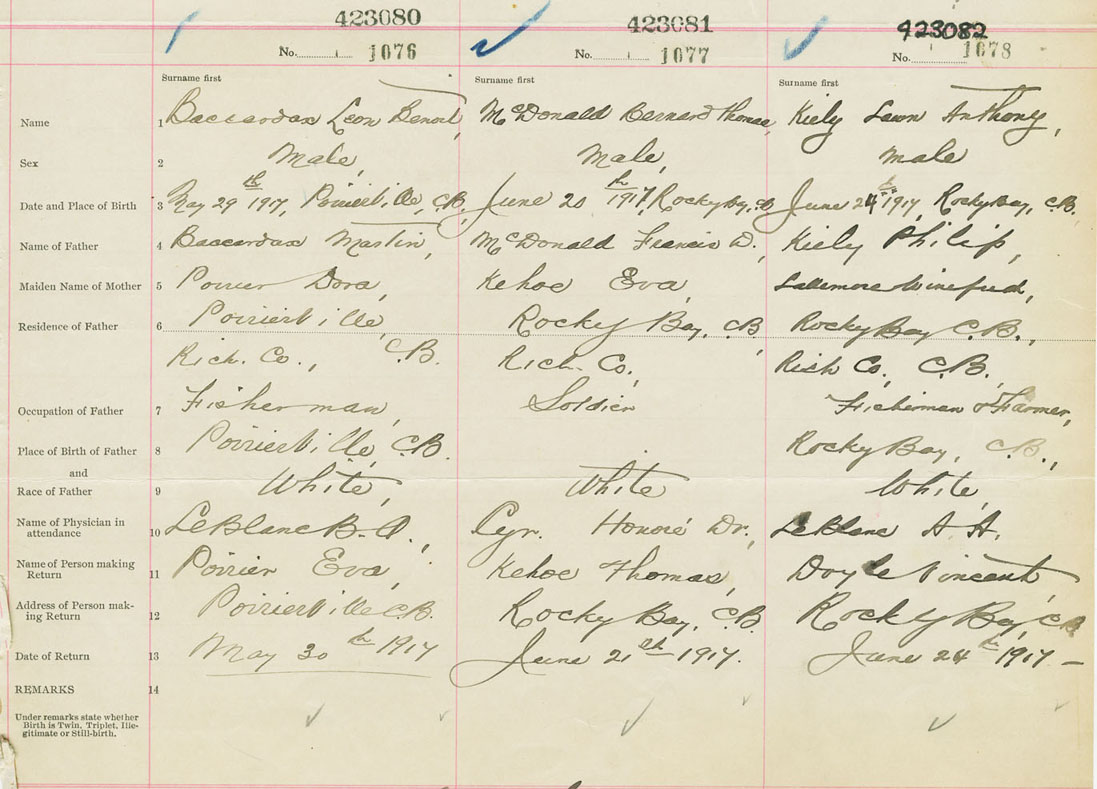 423080 423081 423082
No. 1076 No. 1077 No. 1078
Surname first Surname first Surname first
Name 1 Baccardax Leon Benoit, McDonald Bernard Thomas, Kiely Anthony,
Sex 2 Male, Male, Male
Date and Place of Birth 3 May 29th 1917, Poirierville, C.B. June 20th 1917, Rocky Bay, C.B. June 24th 1917, Rocky Bay, C.B.
Name of Father 4 Baccardax Martin, McDonald Francis D., Kiely Philip,
Maiden Name of Mother 5 Poirier Dora, Kehoe Eva, Winefred,
Residence of Father 6 Poirierville, Rocky Bay, C.B, Rocky Bay C.B.,
Rich. Co., C.B. Rich. Co, Rich Co, C.B.,
Occupation of Father 7 Fisherman, Soldier Fisherman & Farmer,
Place of Birth of Father 8 Poirierville, C.B. Rocky Bay, C.B.,
and
Race of Father 9 White, White White,
Name of Physician in
attendance 10 LeBlanc B.A., Cyr. Honoré Dr., LeBlanc A.A.
Name of Person making
Return 11 Poirier Eva, Kehoe Thomas, Doyle Vincent,
Address of Person mak-
ing Return 12 Poirierville C.B. Rocky Bay, C.B. Rocky Bay, C.B.
Date of Return 13 May 30th 1917 June 21st 1917. June 24th 1917 –
REMARKS 14
Under remarks state whether
Birth is Twin, Triplet, Ille-
gitimate or Still-birth.